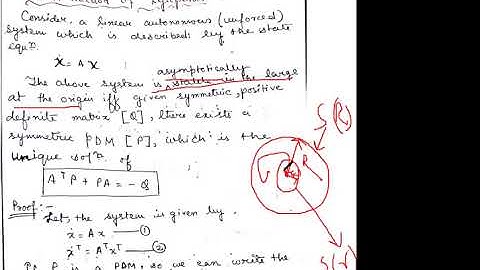 Method of Lyapunov
Consider a linear autonomous (unforced)
system which is described by the state
equⁿ.
Ẋ = A X
asymptotically
The above system is stable in the large
at the origin iff given symmetric, positive
definite matrix [Q], there exists a
symmetric PDM [P], which is the
unique solⁿ of
AᵀP + PA = - Q
Proof:-
Let, the system is given by.
ẋ = Ax —①
ẋᵀ = Aᵀxᵀ —②
P is a PDM, so we can write the
S(R)
R
S(r)